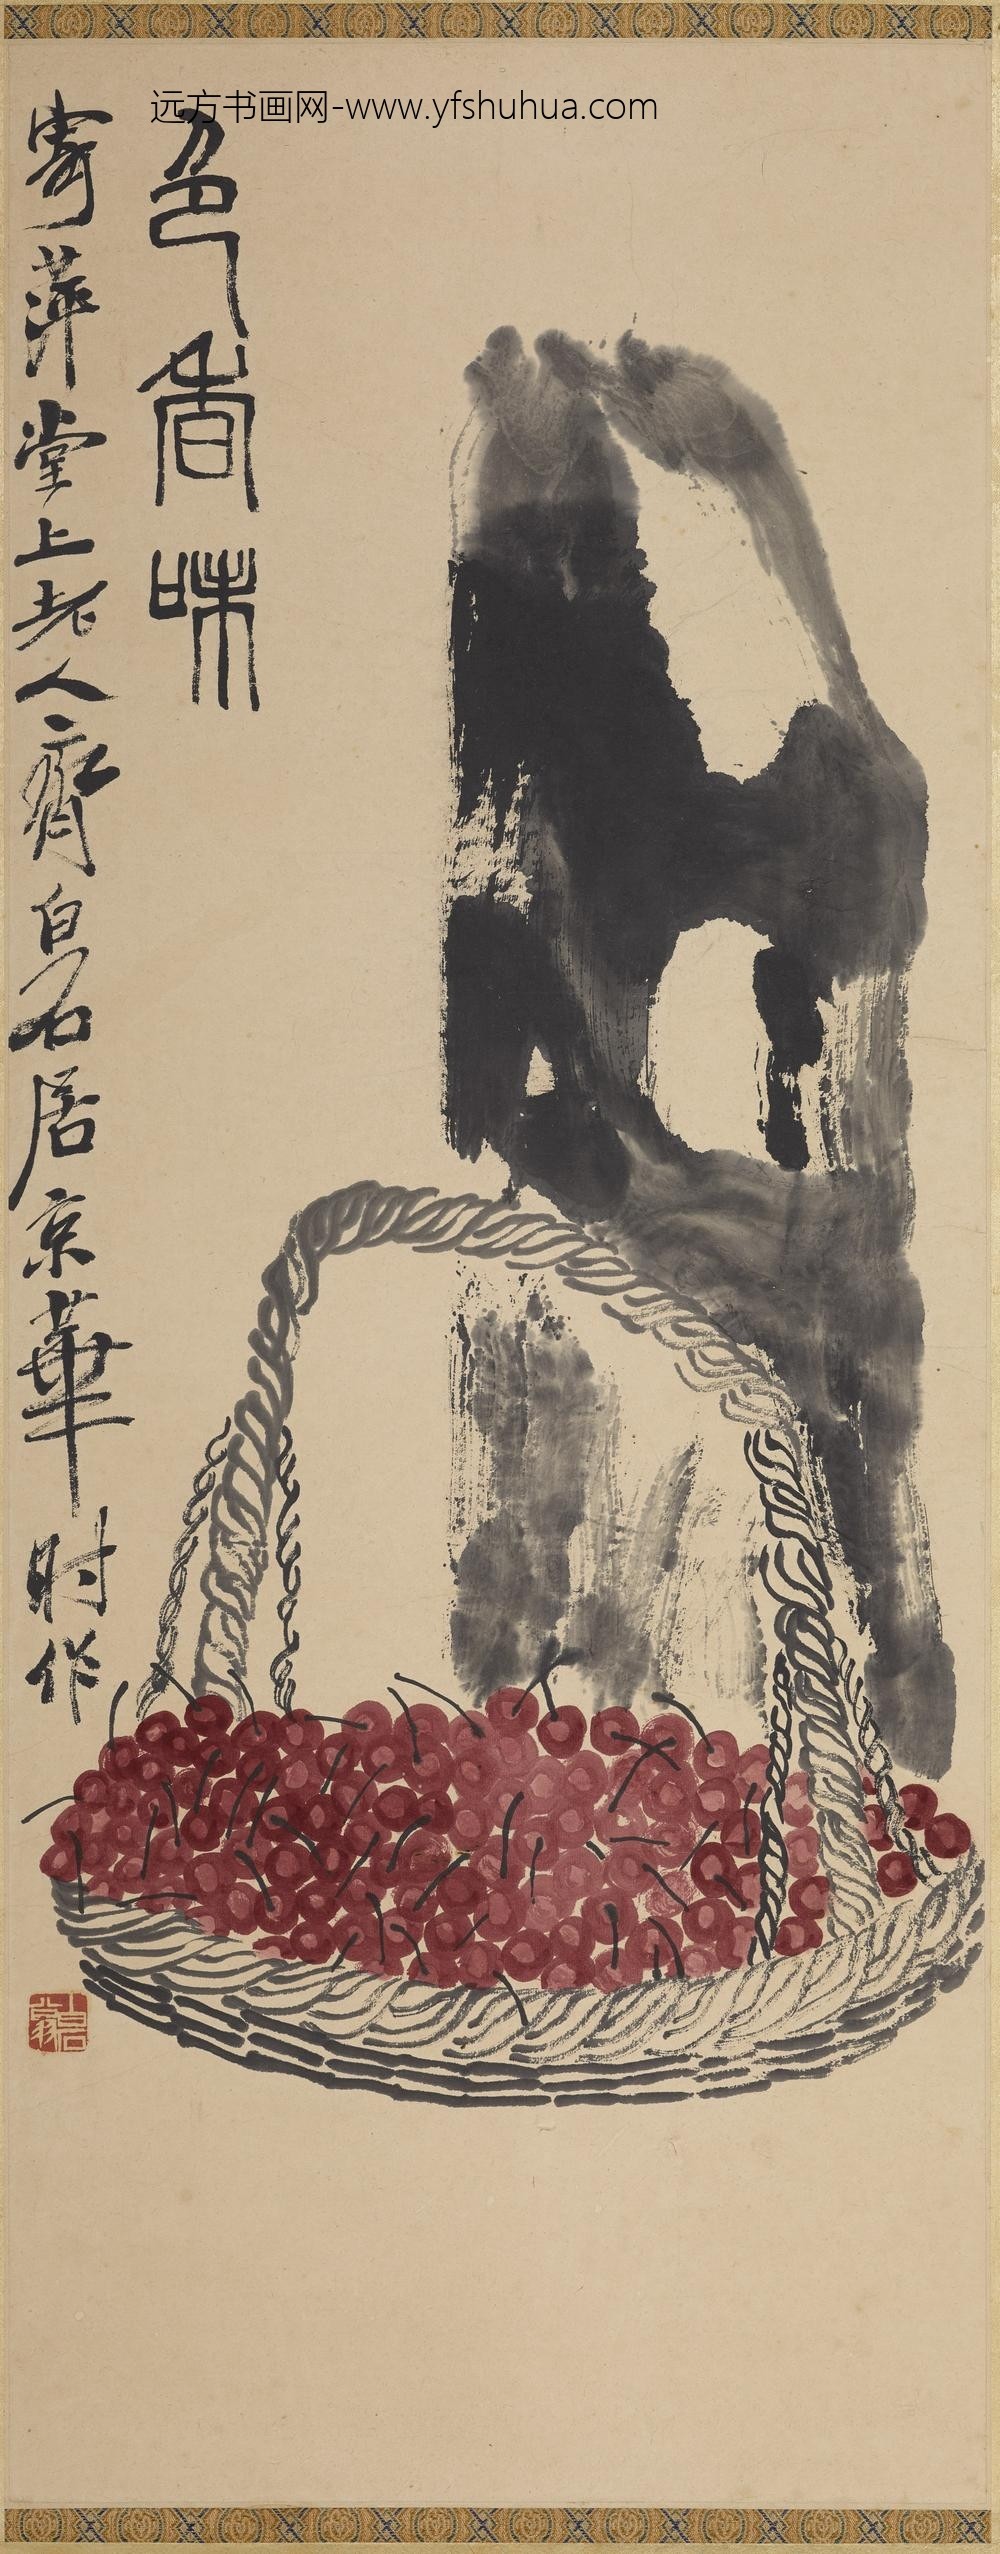 远方书画网-www.yfshuhua.com
色香味
寄萍堂上老人齊白石居京華时作